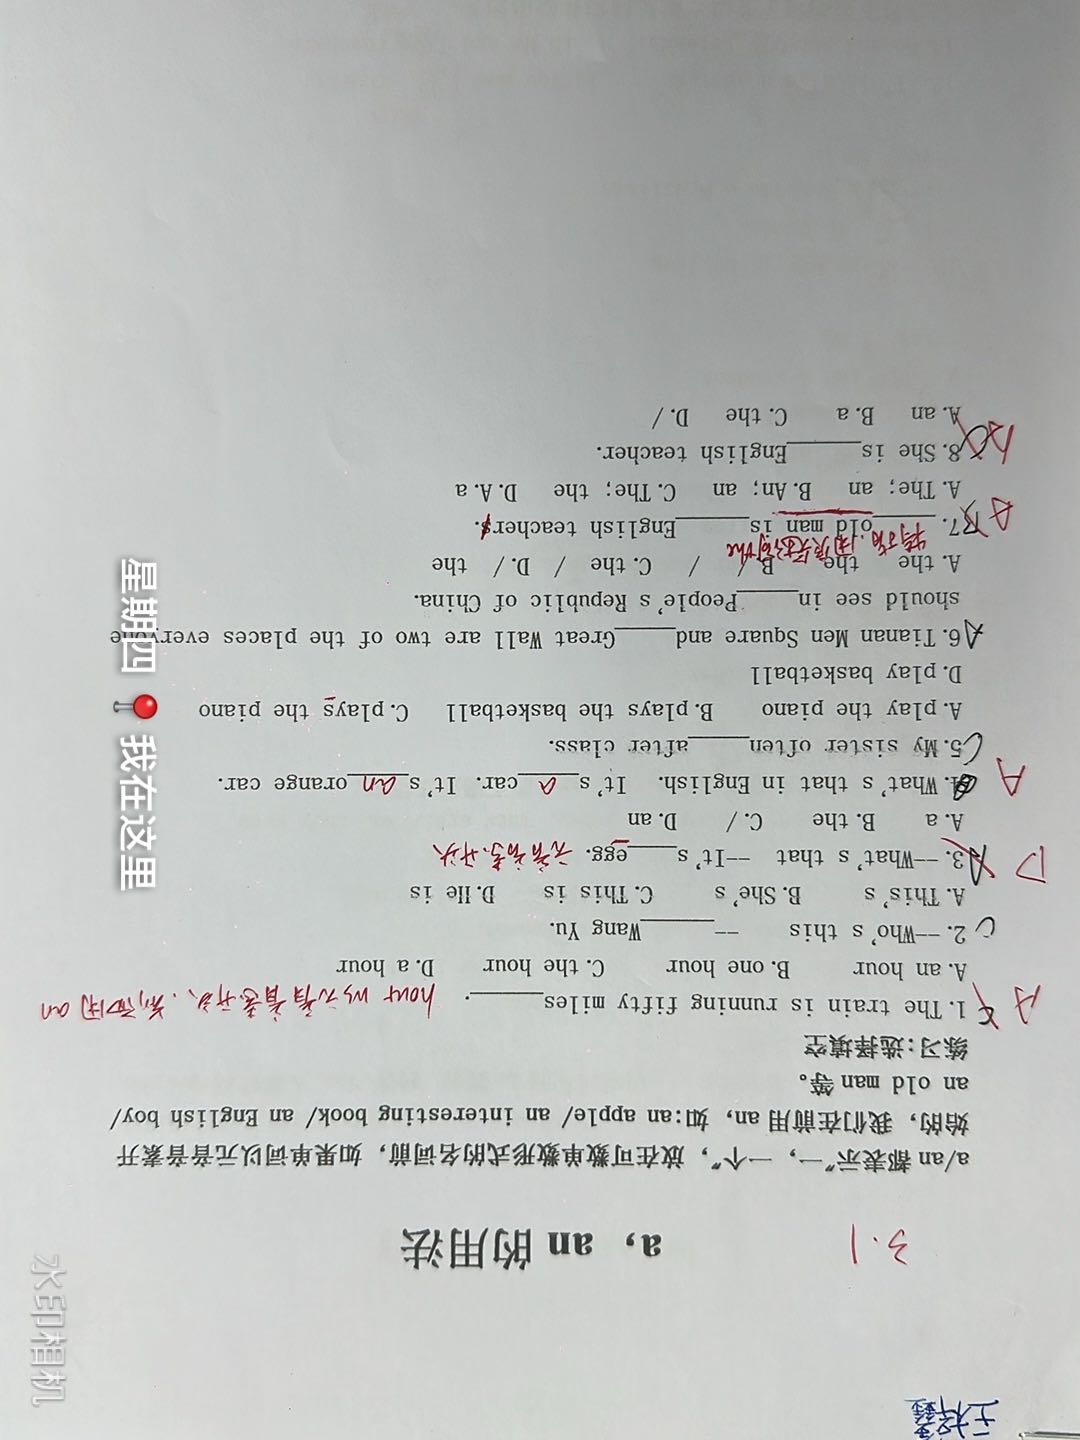 王梓鑫
3.1
a，an 的用法
a/an 都表示"一，一个"，放在可数单数形式的名词前，如果单词以元音音素开
始的，我们在前用 an，如:an apple/ an interesting book/ an English boy/
an old man 等。
练习:选择填空
A C 1. The train is running fifty miles______. hour 以元音音素开头、前面用 an
A. an hour B. one hour C. the hour D. a hour
C 2. --Who's this --______Wang Yu.
A. This's B. She's C. This is D. He is
D A 3. --What's that --It's____egg. 元音音素开头
A. a B. the C. / D. an
A 4. What's that in English. It's a car. It's an orange car.
C 5. My sister often____after class.
A. play the piano B. plays the basketball C. plays the piano
D. play basketball
A 6. Tianan Men Square and____Great Wall are two of the places everyone
should see in____People's Republic of China.
A. the the B / / C. the / D. / the
特指,用定冠词the
A B 7. ____old man is____English teachers.
A. The; an B. An; an C. The; the D. A. a
A C 8. She is_____English teacher.
A. an B. a C. the D. /
星期四 📍 我在这里
水印相机